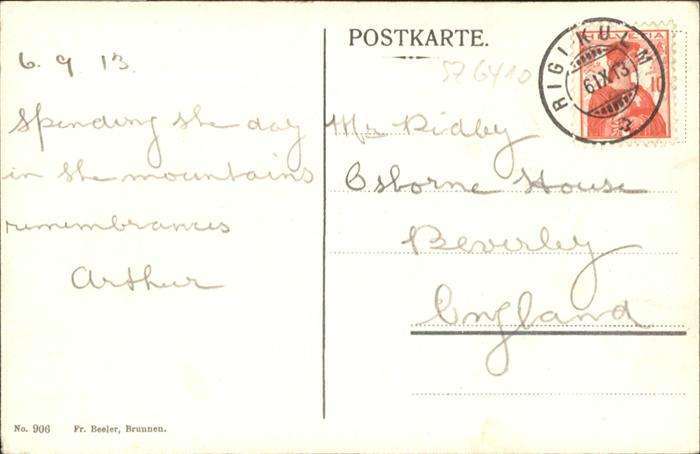 POSTKARTE.
6.9 13.
Spending the day
in the mountains
remembrances
Arthur
576410
HELVETIA
10
RIGI-KULM
6 IX 13
Mr Ridley
Osborne House
Beverley
England
No. 906 Fr. Beeler, Brunnen.